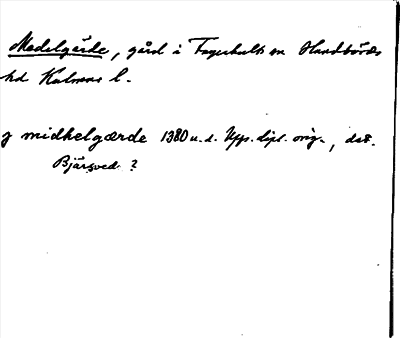 Medelgärde, gård i Fagerhults sn Handbörds
hd Kalmar l.
j midhelgærde 1380 u.d. Upps. dipl. orig., dat.
Bjärsved?